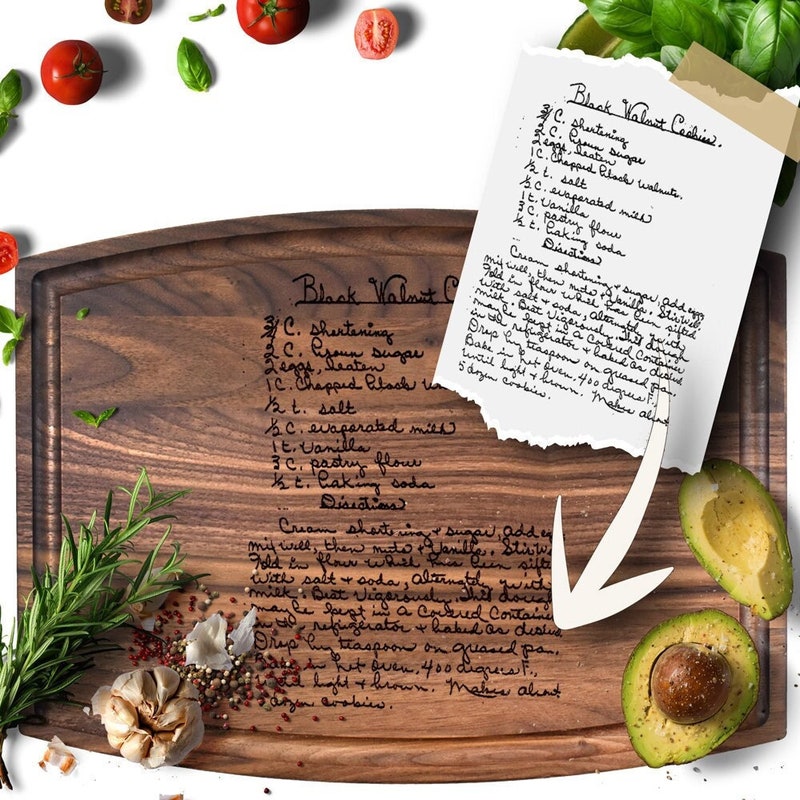 Black Walnut Cookies.
C. shortening
2 C. Brown sugar
2 eggs, beaten
1 C. Chopped Black Walnuts.
½ t. salt
½ C. evaporated milk
1 t. Vanilla
3 C. pastry flour
½ t. baking soda
Directions
Cream shortening + sugar, add egg
mix well, then nuts + Vanilla. Stir Well
Fold in flour which has been sifted
With salt + soda, Alternately with
milk. Beat Vigorously. This dough
may be kept in a Covered Container
in the refrigerator + baked as desired
Drop by teaspoon on greased pan.
Bake in hot oven. 400 degrees F.,
until light + brown. Makes about
5 dozen cookies.
Black Walnut C
C. shortening
2 C. Brown sugar
2 eggs, beaten
1 C. Chopped Black W
½ t. salt
½ C. evaporated milk
1 t. Vanilla
3 C. pastry flour
½ t. baking soda
Directions
Cream shortening + sugar, add egg
mix well, then nuts + Vanilla. Stir We
Fold in flour which has been sift
With salt + soda, Alternately with
milk. Beat Vigorously. This dough
may be kept in a Covered Containe
in the refrigerator + baked as desired
Drop by teaspoon on greased pan.
in hot oven. 400 degrees F.,
light + brown. Makes about
dozen cookies.